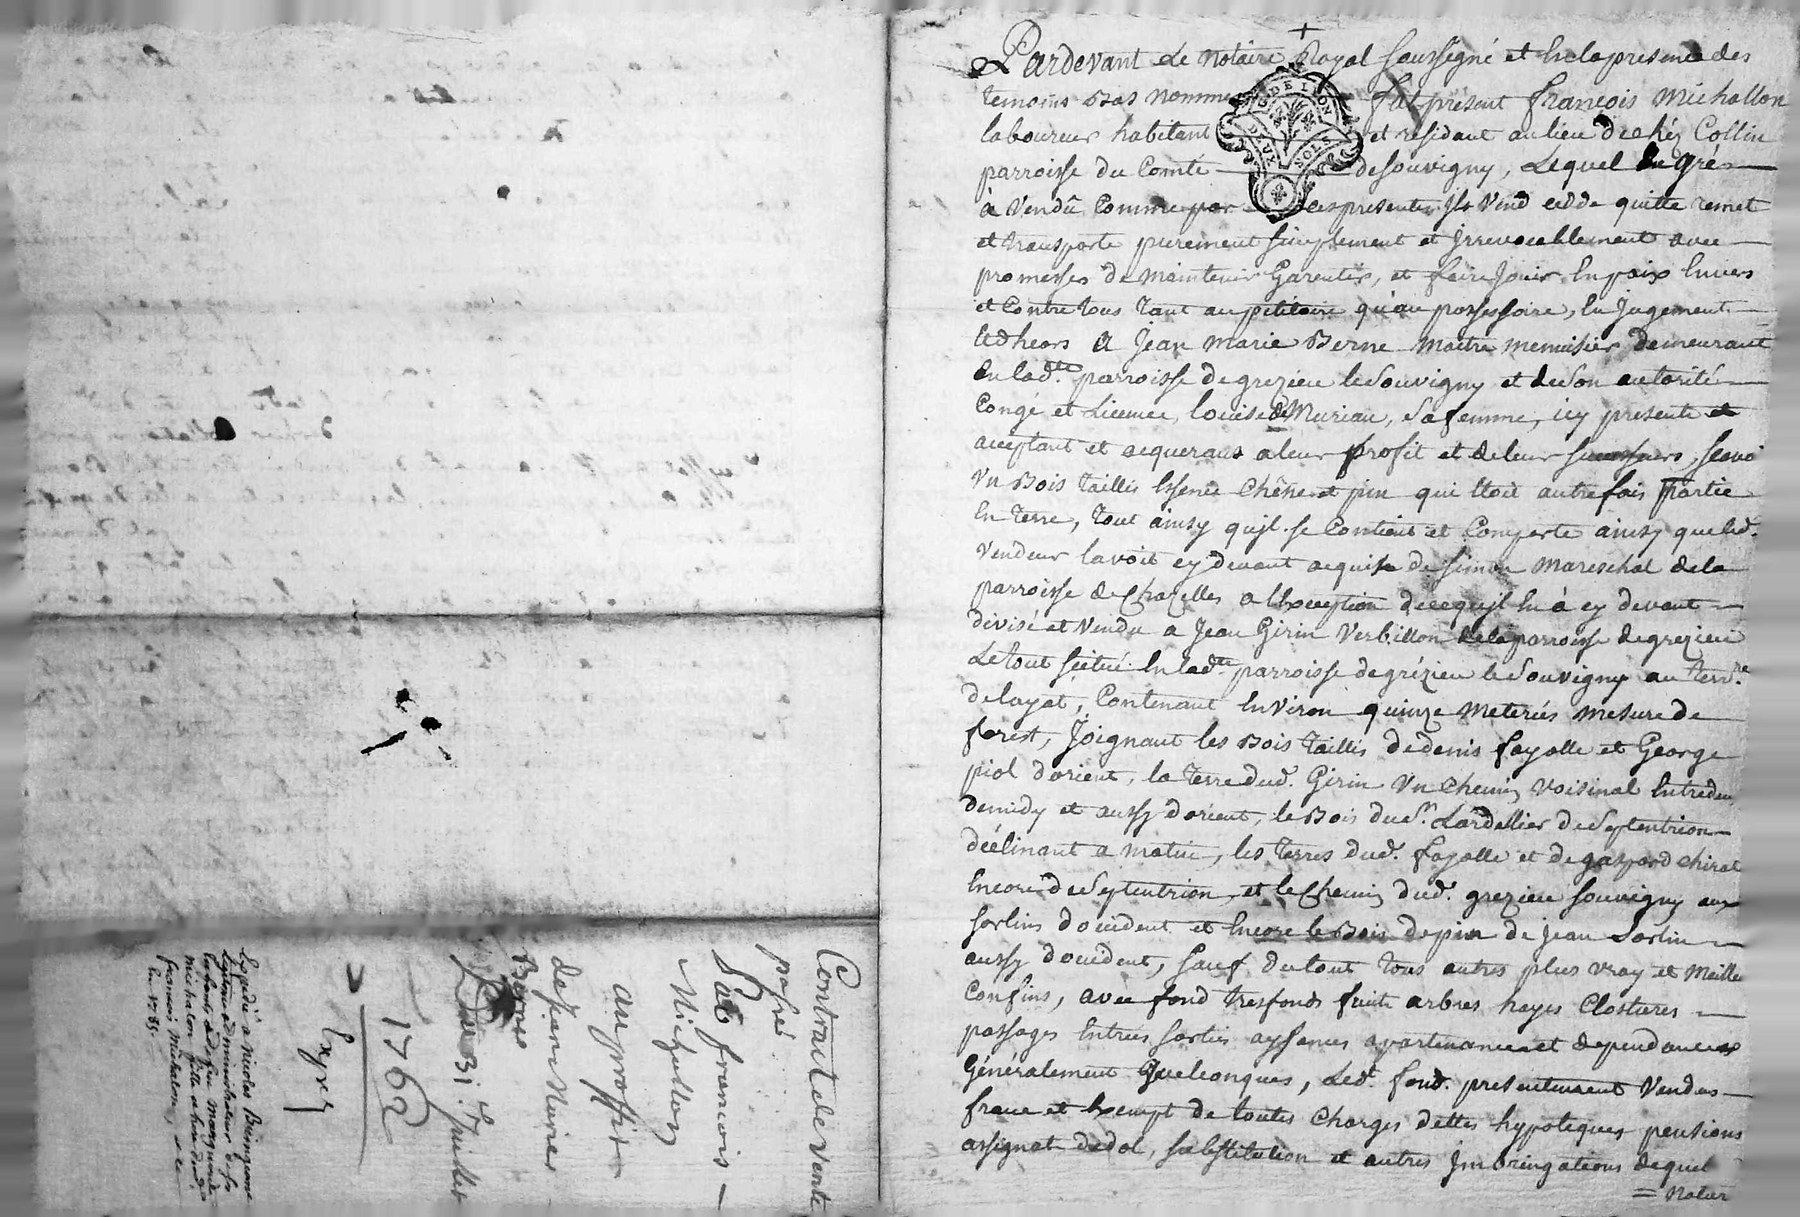 Contrat de vente
passé
Par francois
Michallon
au proffit
de Jean Marie
Berne
Du 31e Juillet
1762
Exp
Expedié à Nicolas
legitime administrateur de ses
Enfants et de feu Marguerite
michalon fille et heritiere de
francois Michalon,
Pardevant Le Notaire Royal Soussigné et En la presence des
temoins Bas Nommés fut présent françois Michallon
laboureur habitant et residant au lieu de chéz Collin
parroisse du Comté de Souvigny, Lequel de gré
à Vendû Comme par ces presentes Il Vend cedde quitte remet
et transporte purement simplement et Irrevocablement avec
promesses de maintenir Garentir, et faire Jouir En paix Envers
et Contre tous tant au petitoire qu'au possessoire, En Jugement
et dhors A Jean Marie Berne maitre menuisier demeurant
En lad.te parroisse de grezieu le Souvigny et de Son autorité
Congé et Licence, louise Murian, Sa femme, icy presente et
acceptant et acquerant a leur profit et de leur successeurs, scavoir
Un Bois taillis Essence Chêne et pin qui Etoit autrefois partie
En terre, tout ainsy qu'il se Contient et Comporte ainsy que led.
Vendeur lavoit cy devant acquise de Simon Mareschal de la
parroisse de Chazelles a lException de ce qu'il En à cy devant
divisé et Vendu a Jean Girin Verbillon de la parroisse de grezieu
Le tout scitué En lad.te parroisse de grézieu le Souvigny au terr.re
de layat, Contenant Environ quinze meterées mesure de
forest, Joignant les Bois taillis de denis fayolle et George
piol dorient, la terre dud. Girin Un chemin Voisinal Entredeux
de midy et aussy dorient, le Bois du S.r Lardellier de Septentrion
déclinant a matin, les terres dud. fayolle et de gaspard chirat
Encore de Septentrion et le Chemin dud. grezieu Souvigny aux
Sorlins docident et Encore le Bois de pin de Jean Sorlin
aussy docident, Sauf du tout tous autres plus vray et Meilleurs
Confins, avec fond tresfonds fuite arbres hayes Clostures
passages Entrées sorties aysances apartenances et dependances
Généralement Quelconques, Led.t fond. presentement Vendus
franc et Exempt de toutes Charges dettes hypoteques pensions
assignat de dol, Substitution et autres Imbringations de quel
= Natur
DE LYON
DEUX SOLS